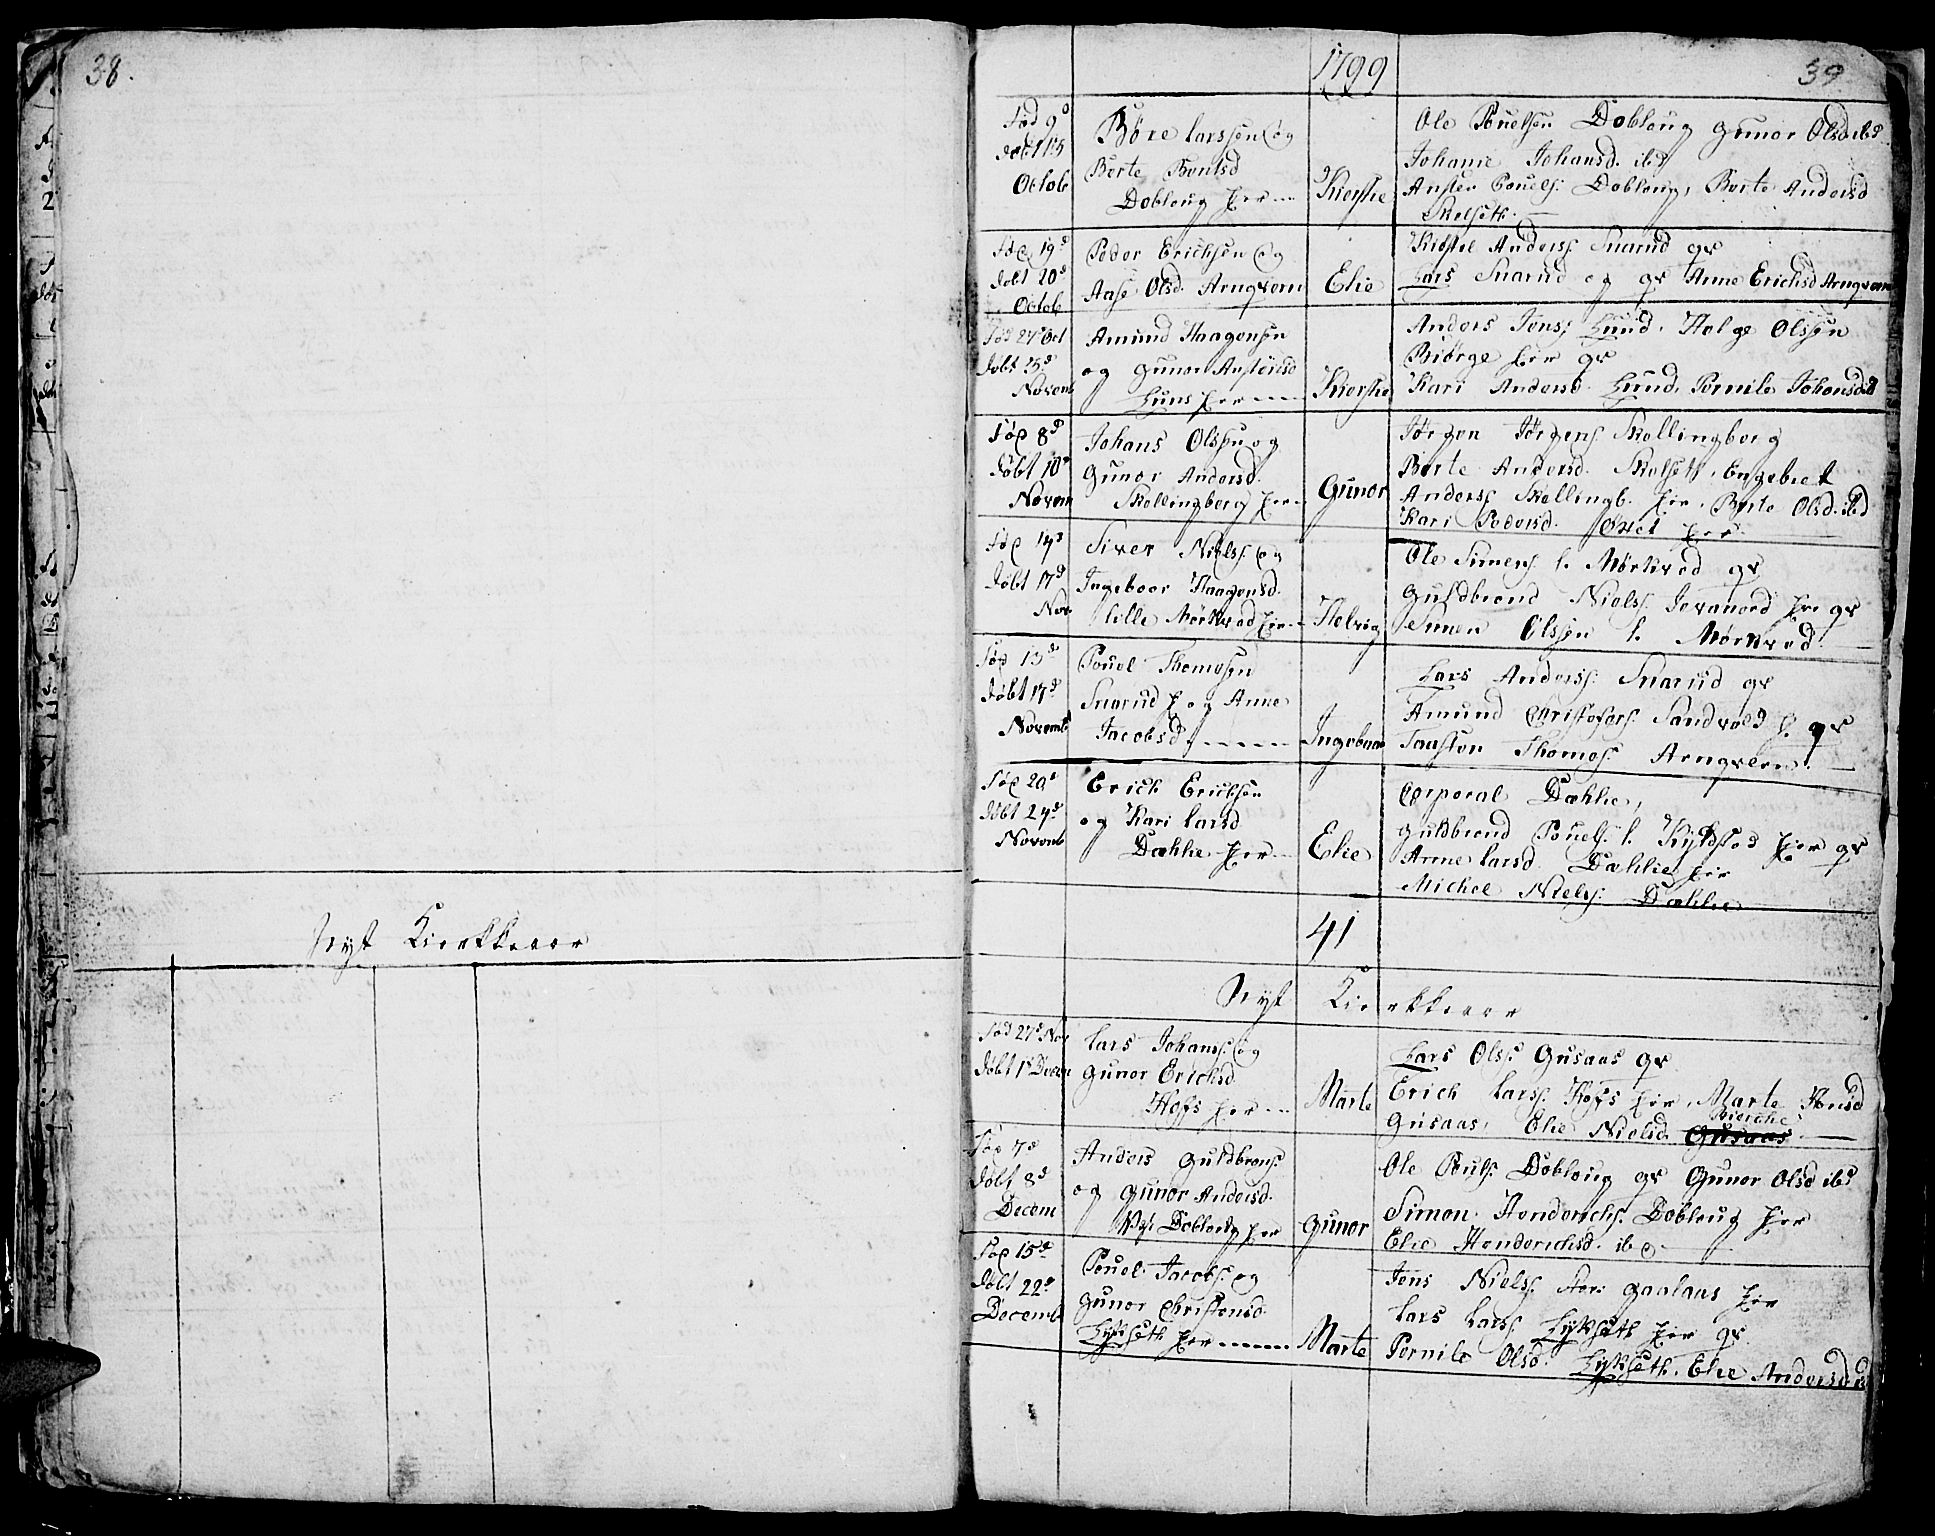 38.
Nyt Kierkkeaar
1799
39
Fød 9d
døbt 15
Octob
Børe Larssen og
Berte Bentsd
Dobloug her
Kierstie
Ole Pouelsen Dobloug Gunor Olsd ibd
Johane Johansd. ibd
Ansten Pouels: Dobloug, Berte Andersd
Skelseth.
Fød 19d
døbt 20d
Octob
Peder Erichsen og
Aase Olsd. Arnqvern
Elie
Kistel Anderss: Snarud gr
Lars Snarud og gr Anne Erichsd Arnqvern
Fød 27d Oct
døbt 25d
Novemb
Amund Haagensen
og Gunor Anstensd
Lund her
Kierstie
Anders Jenss: Lund. Helge Olssen
Biørge her gr
Kari Andersd. Lund, Pernile Johansd. ibd
Fød 8d
døbt 10d
Novem
Johans Olssen og
Gunor Andersd.
Skellingberg her
Gunor
Jørgen Jørgens: Skellingberg
Berte Andersd. Skelseth, Engebret
Anderss: Skellingb. her, Berte Olsd. ibd
Kari Pedersd. her
Fød 14d
døbt 17d
Nov
Siver Niels: og
Ingeboer Haagensd.
Lille Mørkved her
Helvig
Ole Simens: l. Mørkved gr
Guldbrand Niels: Jevanord her gr
Simen Olssen l. Mørkved.
Fød 13d
døbt 17d
Novemb
Pouel Thomesen
Snarud h. og Anne
Jacobsd.
Ingeboer
Lars Anderss: Snarud gr
Amund Christofers: Sandvold h. gr
Tausten Thomes: Arnqvern.
Fød 20d
døbt 24d
Novemb
Erich Erichsen
og Kari Larsd
Dæhlie her
Elie
Corporal Dæhlie,
Guldbrand Pouels: l. Kyldstad her gr
Anne Larsd. Dæhlie her
Michel Niels: Dæhlie
41
Nyt Kierkkeaar
Fød 27d Nov
døbt 1d Decem
Lars Johans: og
Gunor Erichsd.
Hofs her
Marte
Lars Olss: Gusaas gr
Erich Lars: Hofs her, Marte Hansd
Gusaas, Elie Nielsd. Gusaas
Fød 7d
døbt 8d
Decem
Anders Guldbrans:
og Gunor Andersd.
Dobloug her
Gunor
Ole Pouls: Dobloug gr Gunor Olsd ibd
Simen Henderichs: Dobloug her
Elie Henderichsd. ibd
Fød 15d
døbt 22d
Decemb
Pouel Jacobs: og
Gunor Christensd
Lykseth her
Marte
Jens Niels: Stor: Gaalaas her
Lars Lars: Lykseth her gr.
Pernile Olsd. Lykseth, Elie Andersd. ibd